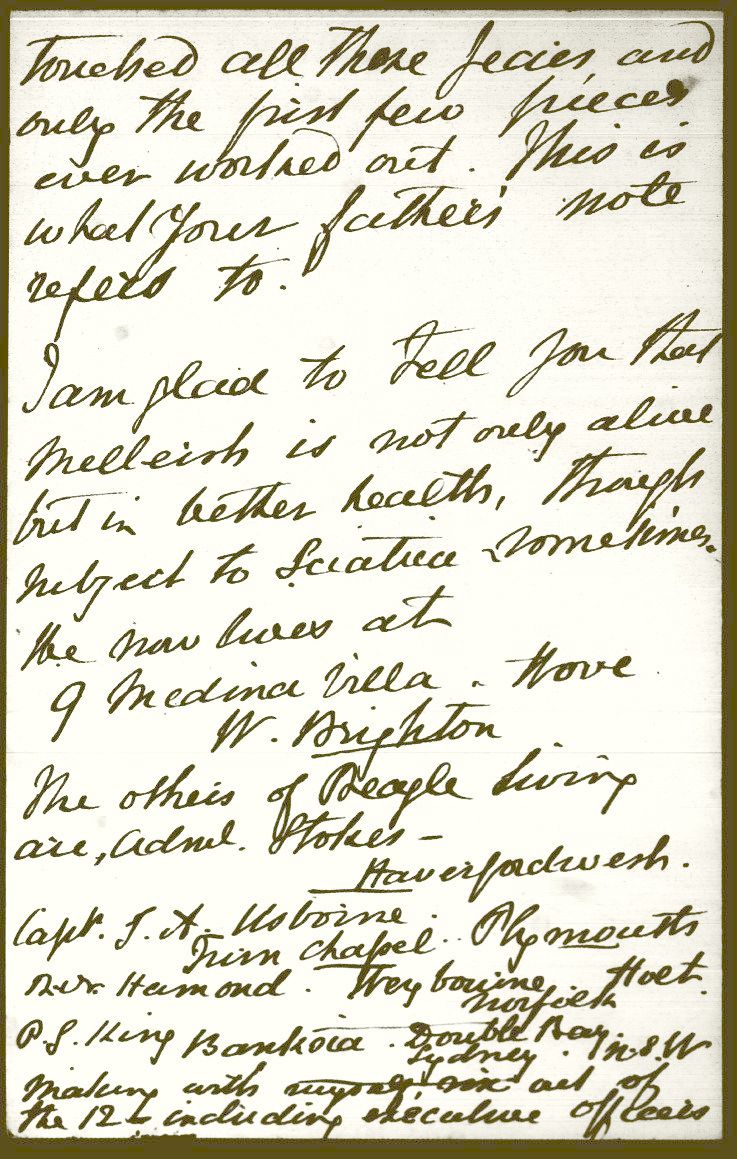 touched all these species and
only the first few pieces
ever worked out. This is
what Your father's note
refers to.
I am glad to tell you that
Melleish is not only alive
but in better health, though
subject to Sciatica sometimes.
He now lives at
9 Medina Villa. Hove
W. Brighton
The others of Beagle living
are, Adml. Stokes –
Haverfordwesh.
Capt. J. A. Usborne.
Trim Chapel. Plymouth
Revr. Hamond. Weybourne Holt.
Norfolk
P. G. King Banksia. Double Bay.
Sydney. N.S.W
Making with myself six out of
the 12 – including executive officers